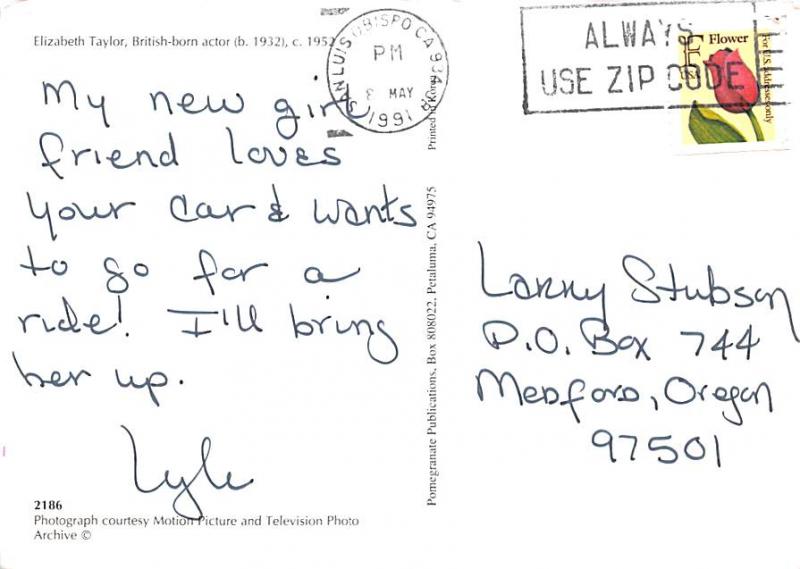 Elizabeth Taylor, British-born actor (b. 1932), c. 1952
My new girl
friend loves
your car & wants
to go for a
ride! I'll bring
her up.
Lyle
2186
Photograph courtesy Motion Picture and Television Photo
Archive ©
Pomegranate Publications, Box 808022, Petaluma, CA 94975
Printed in Korea
SAN LUIS OBISPO CA 934
PM
8 MAY
1991
ALWAYS
USE ZIP CODE
Flower
F
USA
For U.S. addresses only
Larry Stubson
P.O. Box 744
Medford, Oregon
97501